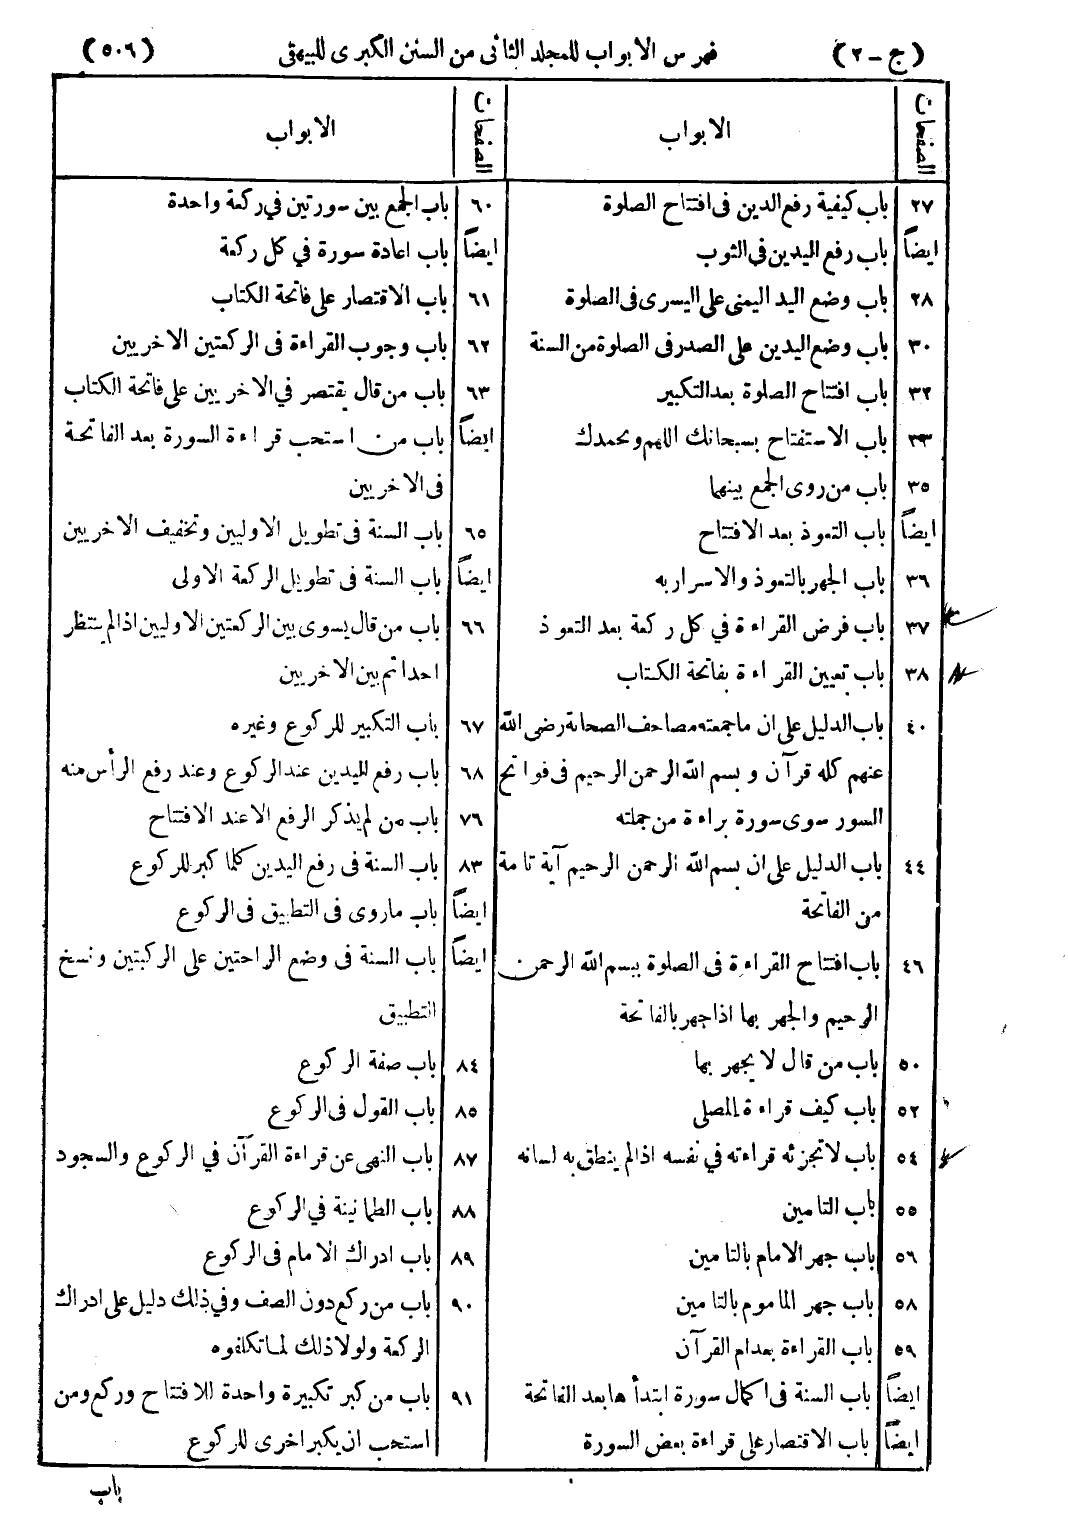 (ج - ٢) فهرس الابواب للمجلد الثانى من السنن الكبرى للبيهقى (٥٠٦)
الصفحات الابواب
٢٧ باب كيفية رفع الدين فى افتتاح الصلوة
ايضاً باب رفع اليدين فى الثوب
٢٨ باب وضع اليد اليمنى على اليسرى فى الصلوة
٣٠ باب وضع اليدين على الصدر فى الصلوة من السنة
٣٢ باب افتتاح الصلوة بعد التكبير
٣٣ باب الاستفتاح بسبحانك اللهم وبحمدك
٣٥ باب من روى الجمع بينهما
ايضاً باب التعوذ بعد الافتتاح
٣٦ باب الجهر بالتعوذ والاسرار به
٣٧ باب فرض القراءة في كل ركعة بعد التعوذ
٣٨ باب تعيين القراءة بفاتحة الكتاب
٤٠ باب الدليل على ان ما جمعته مصاحف الصحابة رضى الله
عنهم كله قرآن و بسم الله الرحمن الرحيم فى فواتح
السور سوى سورة براءة من جملته
٤٤ باب الدليل على ان بسم الله الرحمن الرحيم آية تامة
من الفاتحة
٤٦ باب افتتاح القراءة فى الصلوة ببسم الله الرحمن
الرحيم والجهر بها اذا جهر بالفاتحة
٥٠ باب من قال لا يجهر بها
٥٢ باب كيف قراءة المصلى
٥٤ باب لا تجزئه قراءته في نفسه اذا لم ينطق به لسانه
٥٥ باب التامين
٥٦ باب جهر الامام بالتامين
٥٨ باب جهر الماموم بالتامين
٥٩ باب القراءة بعد ام القرآن
ايضاً باب السنة فى اكمال سورة ابتدأها بعد الفاتحة
ايضاً باب الاقتصار على قراءة بعض السورة
الصفحات الابواب
٦٠ باب الجمع بين سورتين في ركعة واحدة
ايضاً باب اعادة سورة في كل ركعة
٦١ باب الاقتصار على فاتحة الكتاب
٦٢ باب وجوب القراءة فى الركعتين الاخريين
٦٣ باب من قال يقتصر في الاخريين على فاتحة الكتاب
ايضاً باب من استحب قراءة السورة بعد الفاتحة
فى الاخريين
٦٥ باب السنة فى تطويل الاوليين وتخفيف الاخريين
ايضاً باب السنة فى تطويل الركعة الاولى
٦٦ باب من قال يسوى بين الركعتين الاوليين اذا لم ينتظر
احدا ثم بين الاخريين
٦٧ باب التكبير للركوع وغيره
٦٨ باب رفع لليدين عند الركوع وعند رفع الرأس منه
٧٦ باب من لم يذكر الرفع الا عند الافتتاح
٨٣ باب السنة فى رفع اليدين كلما كبر للركوع
ايضاً باب ماروى فى التطبيق فى الركوع
ايضاً باب السنة فى وضع الراحتين على الركبتين ونسخ
التطبيق
٨٤ باب صفة الركوع
٨٥ باب القول فى الركوع
٨٧ باب النهى عن قراءة القرآن في الركوع والسجود
٨٨ باب الطمانينة في الركوع
٨٩ باب ادراك الامام فى الركوع
٩٠ باب من ركع دون الصف وفي ذلك دليل على ادراك
الركعة ولولا ذلك لما تكلفوه
٩١ باب من كبر تكبيرة واحدة للافتتاح وركع ومن
استحب ان يكبر اخرى للركوع
باب